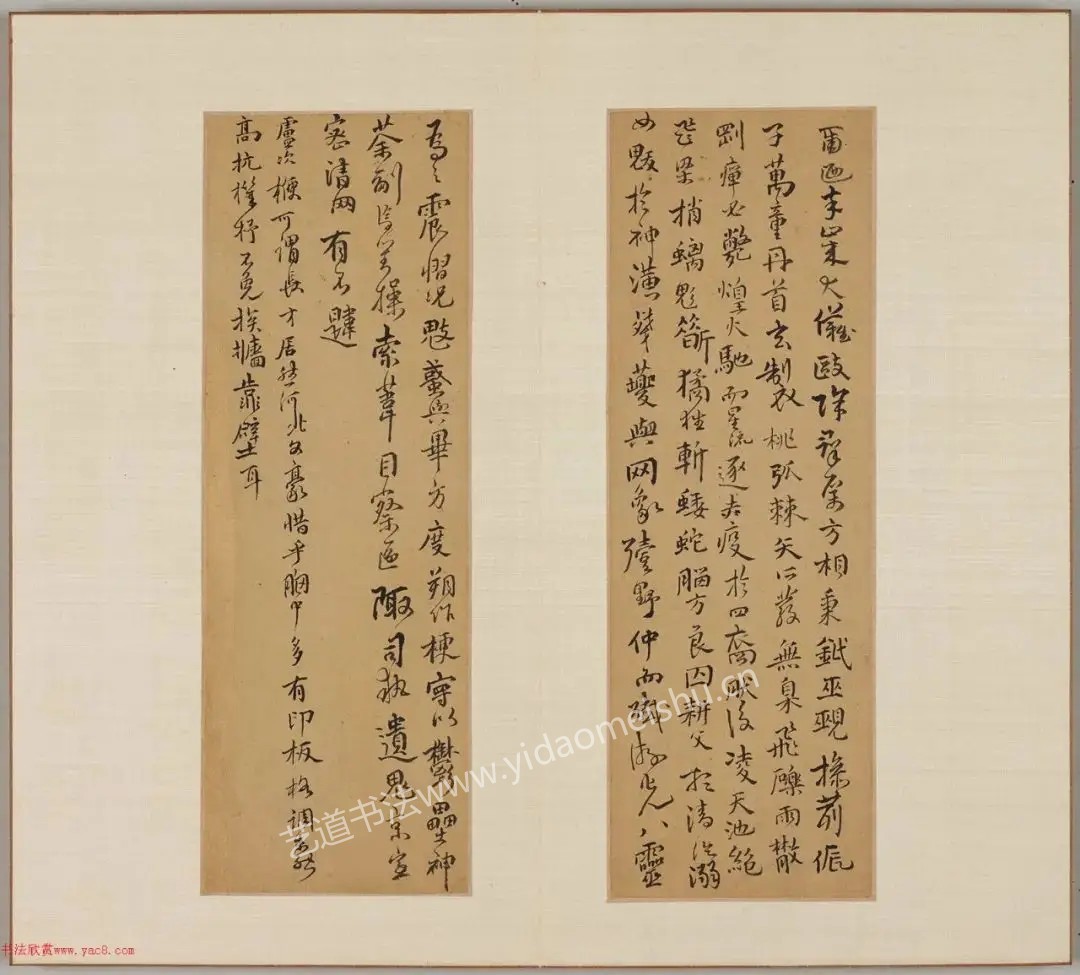 爾迺卒歲大儺毆除群厲方相秉鉞巫覡操茢侲
子萬童丹首玄製桃弧棘矢所發無臬飛礫雨散
剛癉必斃煌火馳而星流逐赤疫於四裔然後凌天池絕
飛梁捎魑魅斮獝狂斬蜲蛇腦方良囚耕父於清泠溺
女魃於神潢殘夔與网象殪野仲而殲游光八靈
為之震慴況鬾蜮與畢方度朔作梗守以鬱壘神
荼副焉對操索葦目察區陬司執遺鬼京室
密清网有不韙
盧次楩可謂長才居然河北文豪惜乎胸中多有印板格調
高抗機杼不免挨墻靠壁耳
艺道书法www.yidaomeishu.cn
书法欣赏www.yac8.com